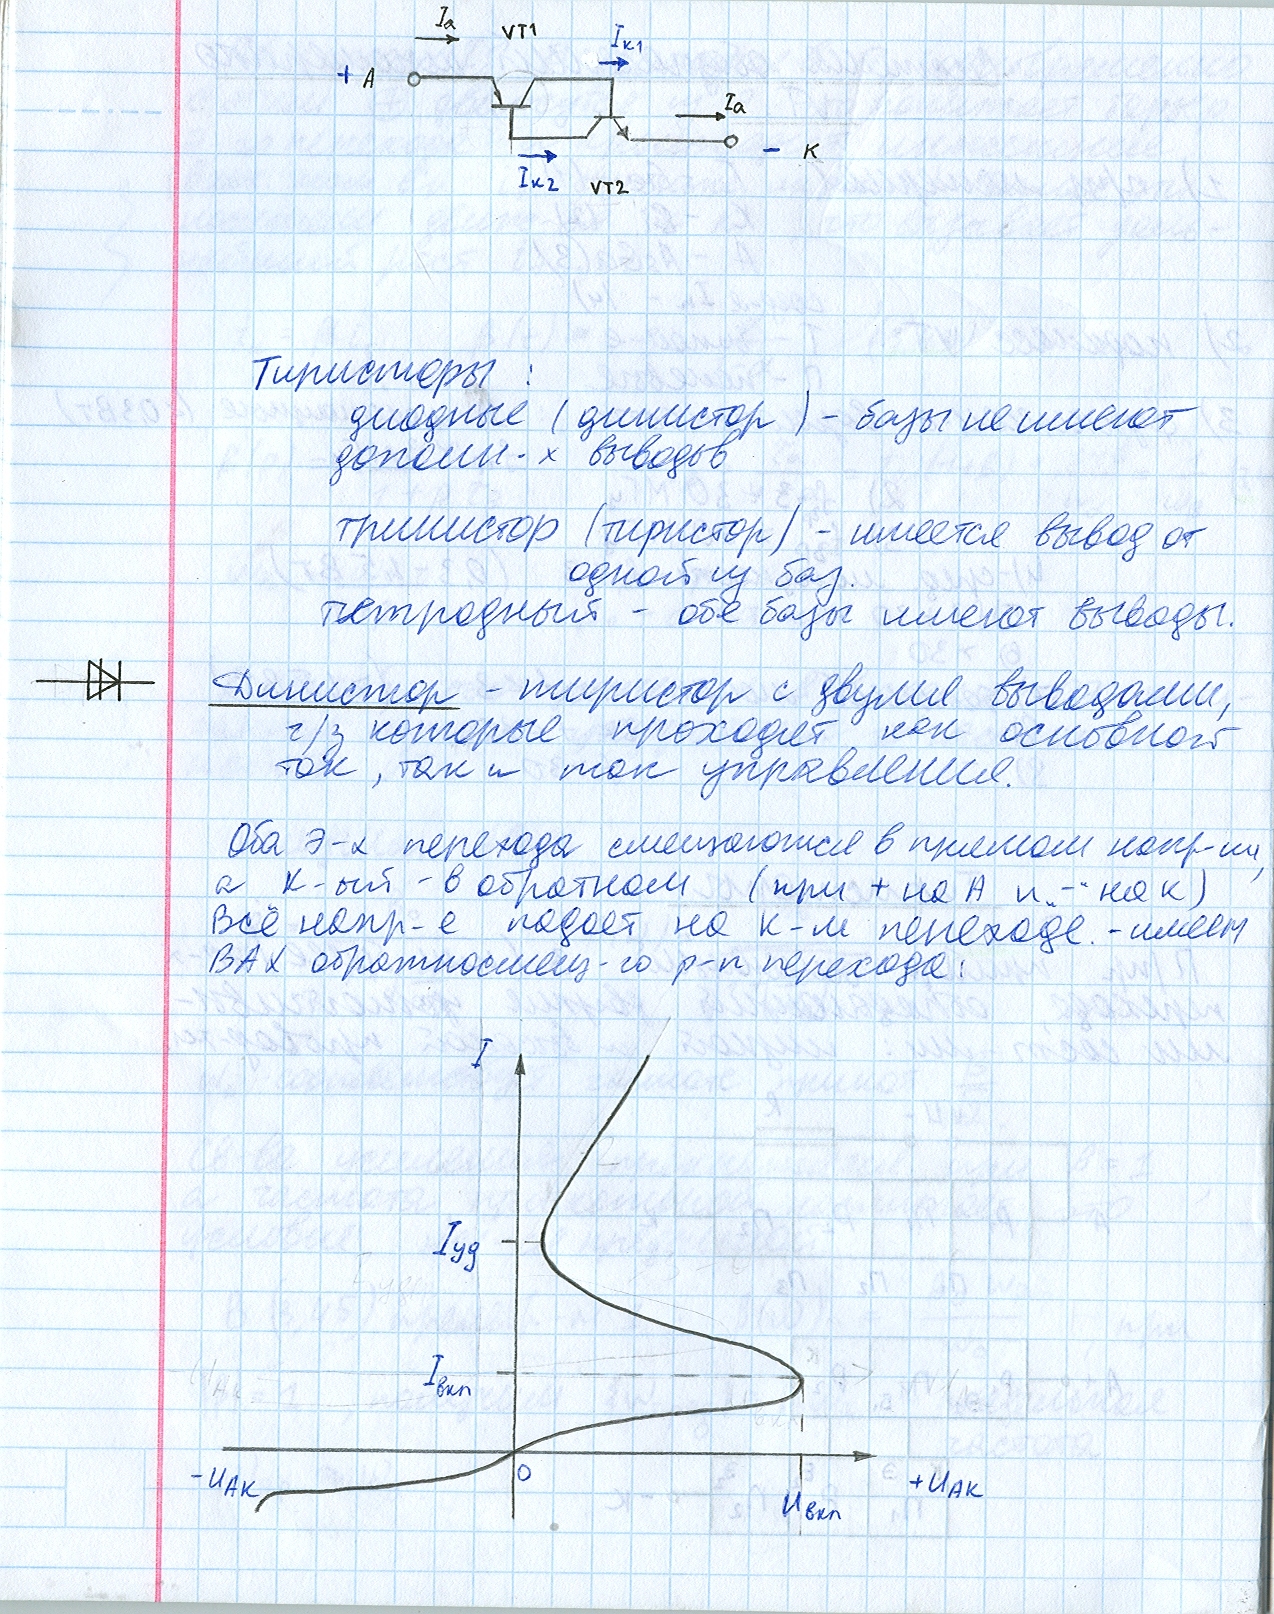 Iа
VT1
Iк1
+ А
Iа
- К
Iк2
VT2
Тиристоры :
диодные (динистор) - базы не имеют
дополн-х выводов
тринистор (тиристор) - имеется вывод от
одной из баз.
тетродный - обе базы имеют выводы.
Динистор - тиристор с двумя выводами,
ч/з которые проходят как основной
ток, так и ток управления.
Оба Э-х перехода смещаются в прямом напр-ии,
а К-ый - в обратном (при + на А и "-" на К)
Всё напр-е падает на К-м переходе. - имеем
ВАХ обратносмещ-го p-n перехода:
I
Iуд
Iвкл
-UАК
0
Uвкл
+UАК